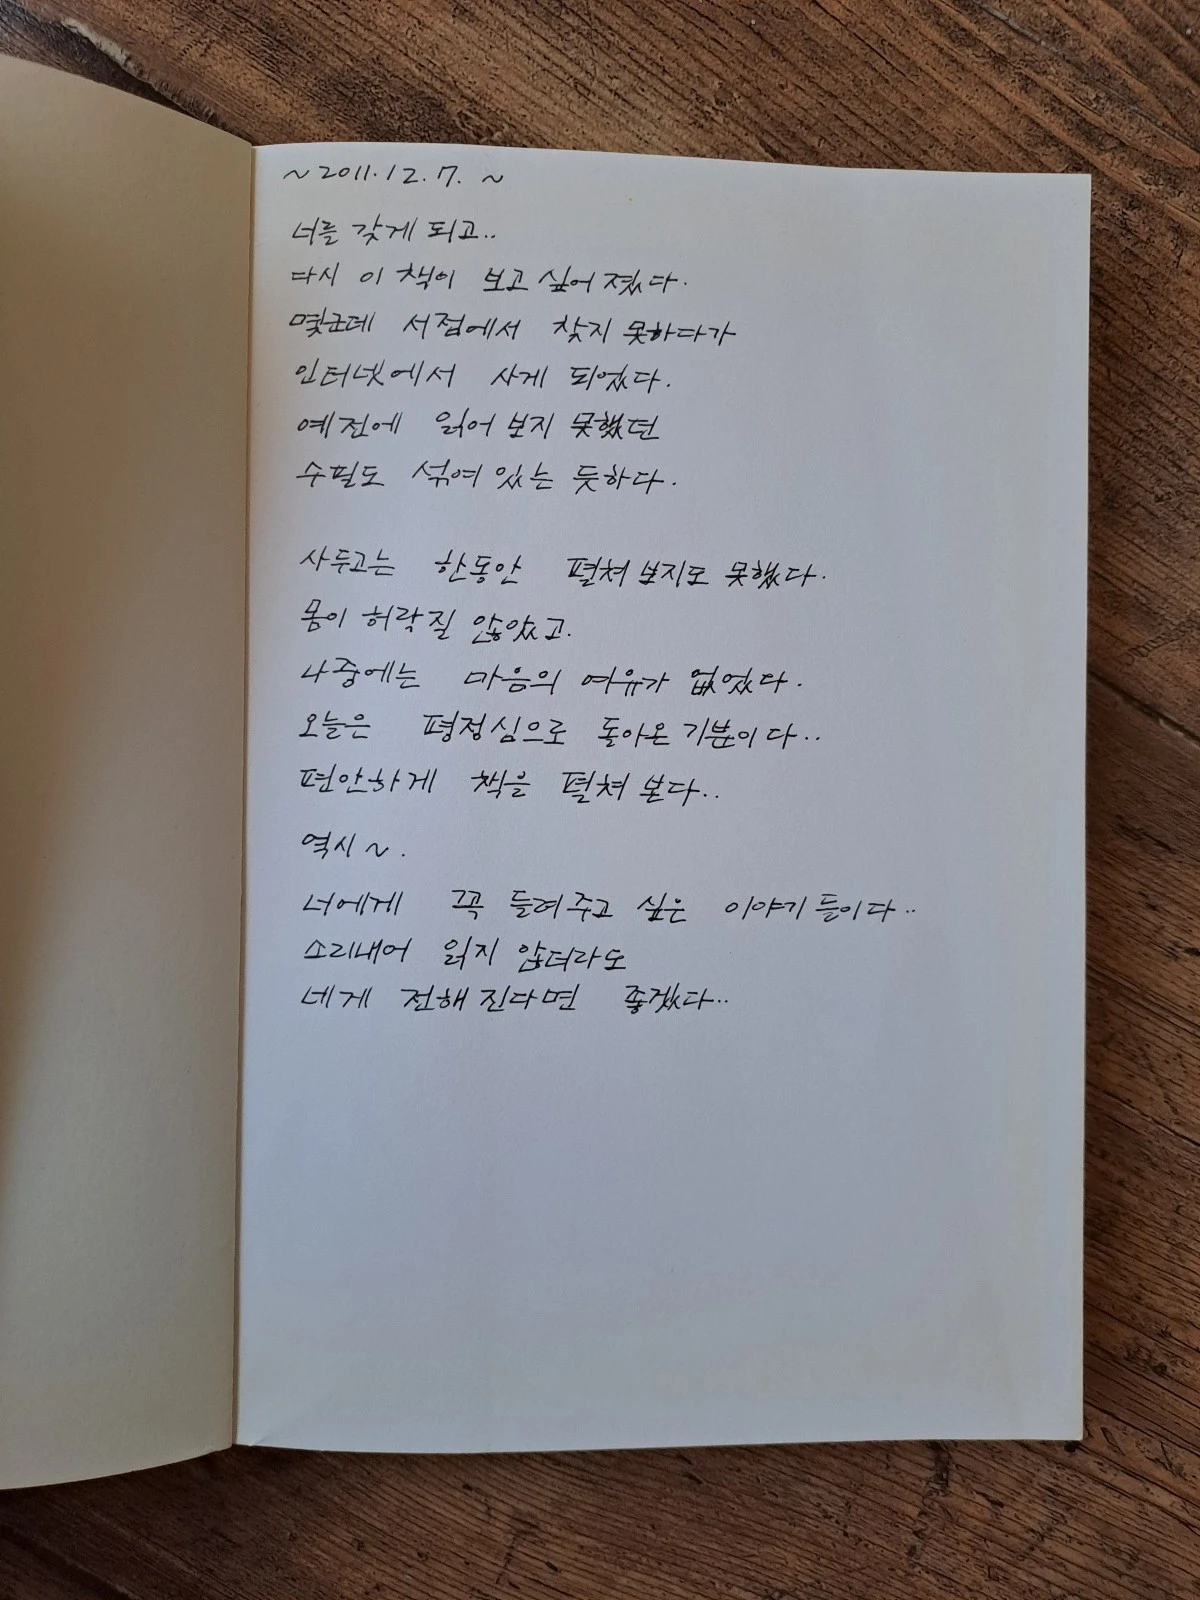 ~2011.12.7. ~
너를 갖게 되고..
다시 이 책이 보고 싶어 졌다.
몇군데 서점에서 찾지 못하다가
인터넷에서 사게 되었다.
예전에 읽어 보지 못했던
수필도 섞여 있는 듯하다.
사두고는 한동안 펼쳐 보지도 못했다.
몸이 허락질 않았고.
나중에는 마음의 여유가 없었다.
오늘은 평정심으로 돌아온 기분이다..
편안하게 책을 펼쳐 본다..
역시~.
너에게 꼭 들려주고 싶은 이야기들이다..
소리내어 읽지 않더라도
네게 전해진다면 좋겠다..